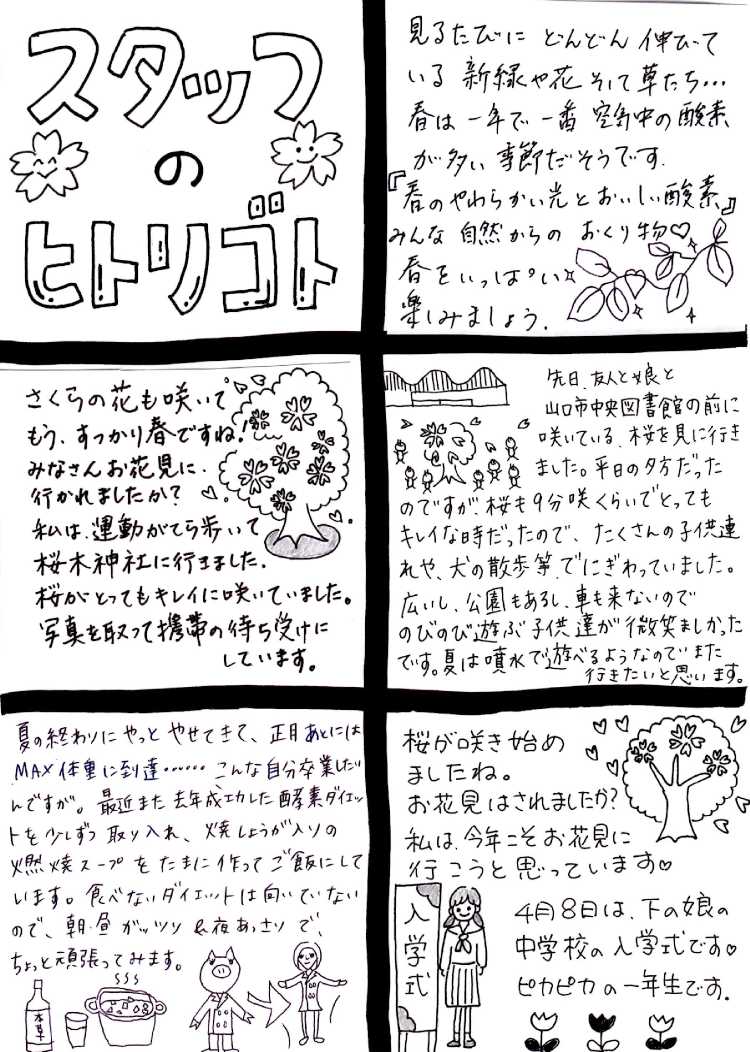 スタッフ
の
ヒトリゴト
見るたびに どんどん 伸びて
いる 新緑や花 そして 草たち…
春は 一年で 一番 空気中の酸素
が多い 季節だそうです.
『春のやわらかい光とおいしい酸素』
みんな 自然からの おくり物♡
春をいっぱい
楽しみましょう.
さくらの花も咲いて
もう、すっかり春ですね!
みなさんお花見に、
行かれましたか?
私は、運動がてら歩いて
桜木神社に行きました.
桜がとってもキレイに咲いていました。
写真を取って携帯の待ち受けに
しています。
先日、友人と娘と
山口市中央図書館の前に
咲いている、桜を見に行き
ました。平日の夕方だった
のですが、桜も9分咲くらいでとっても
キレイな時だったので、たくさんの子供連
れや、犬の散歩等、でにぎわっていました。
広いし、公園もあるし、車も来ないので
のびのび遊ぶ子供達が微笑ましかった
です。夏は噴水で遊べるようなのでまた
行きたいと思います。
夏の終わりにやっと やせてきて、正月あとには
MAX体重に到達…… こんな自分卒業したい
んですが。最近また 去年成功した酵素ダイエッ
トを少しずつ 取り入れ、焼しょうが入りの
燃焼スープを たまに作って ご飯にして
います。食べないダイエットは向いていない
ので、朝・昼 ガッツリ &夜あっさり で、
ちょっと頑張ってみます。
本草
桜が咲き始め
ましたね。
お花見はされましたか?
私は、今年こそお花見に
行こうと思っています♡
入学式
4月8日は、下の娘の
中学校の入学式です♡
ピカピカの一年生です.